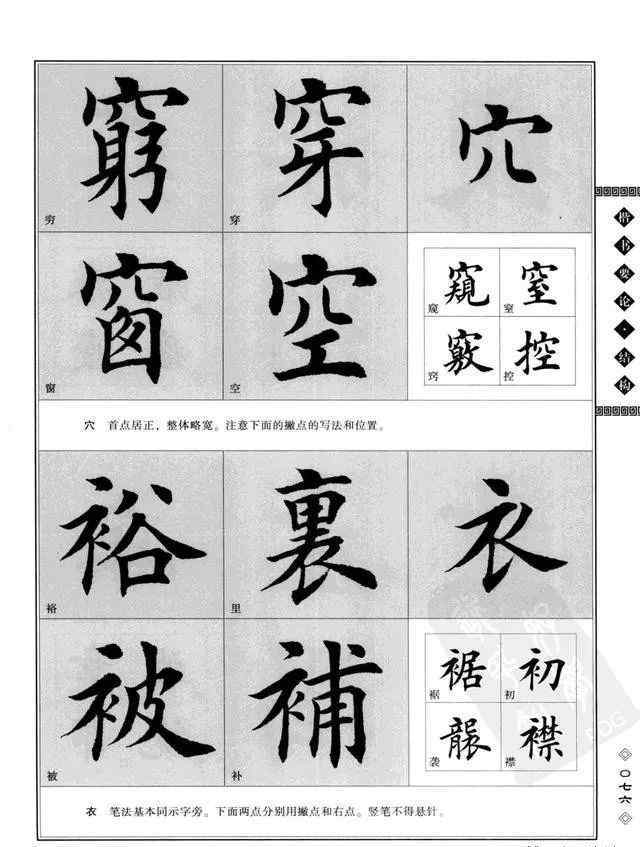 窮 穿 穴
穷 穿
窗 空
窗 空
窺 窒
窥 窒
竅 控
窍 控
穴 首点居正，整体略宽。注意下面的撇点的写法和位置。
裕 裏 衣
裕 里
被 補
被 补
裾 初
裾 初
襲 襟
袭 襟
衣 笔法基本同示字旁。下面两点分别用撇点和右点。竖笔不得悬针。
楷书要论·结构
〇七六